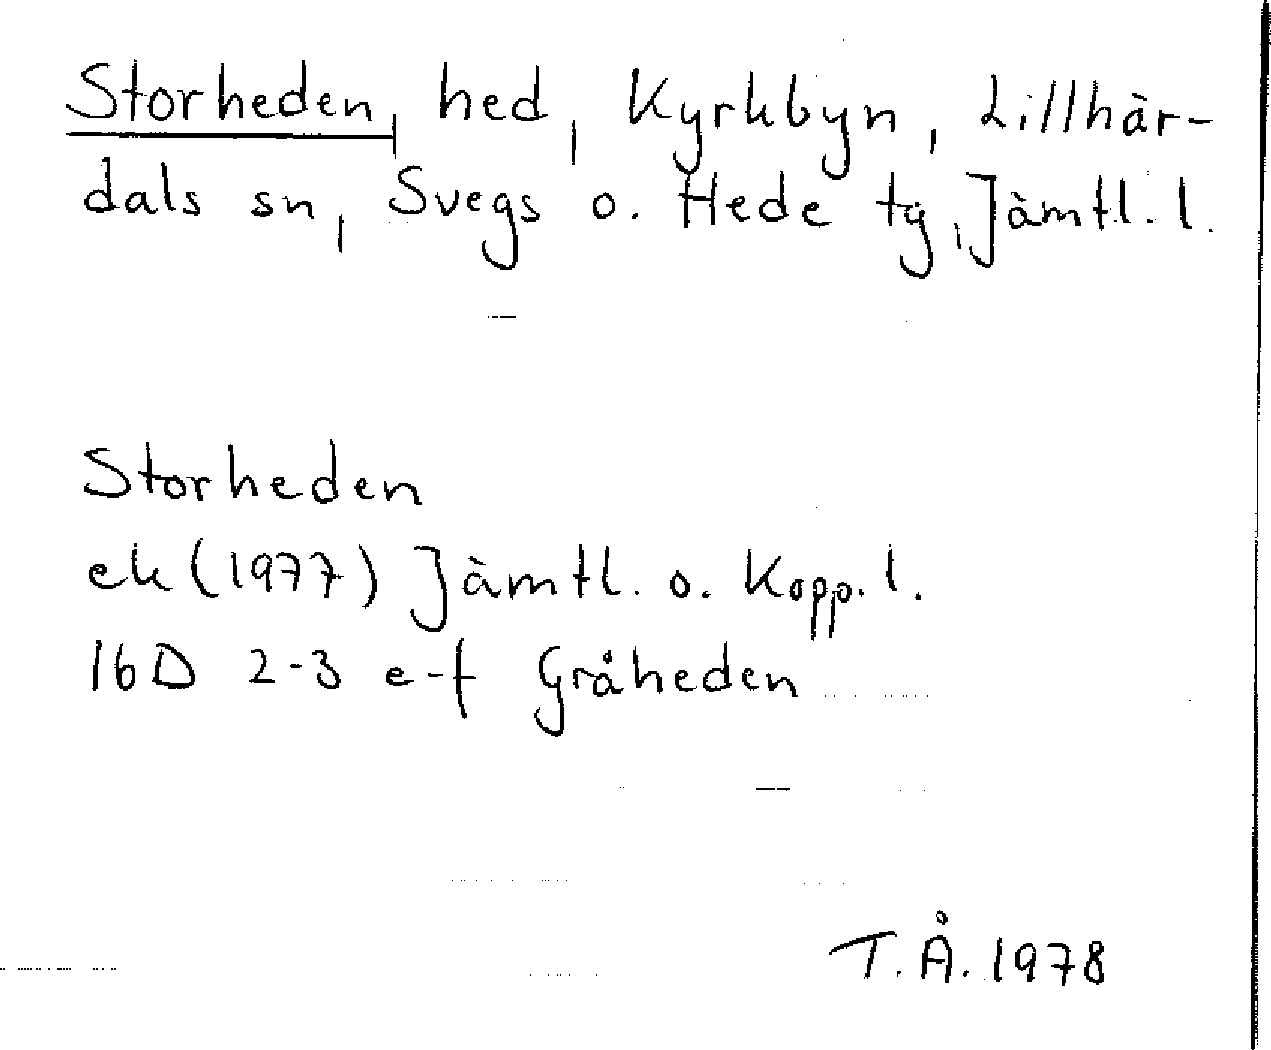 Storheden, hed, Kyrkbyn, Lillhär-
dals sn, Svegs o. Hede tg, Jämtl. l.
Storheden
ek (1977) Jämtl. o. Kopp. l.
16D 2-3 e-f Gråheden
T.Å. 1978